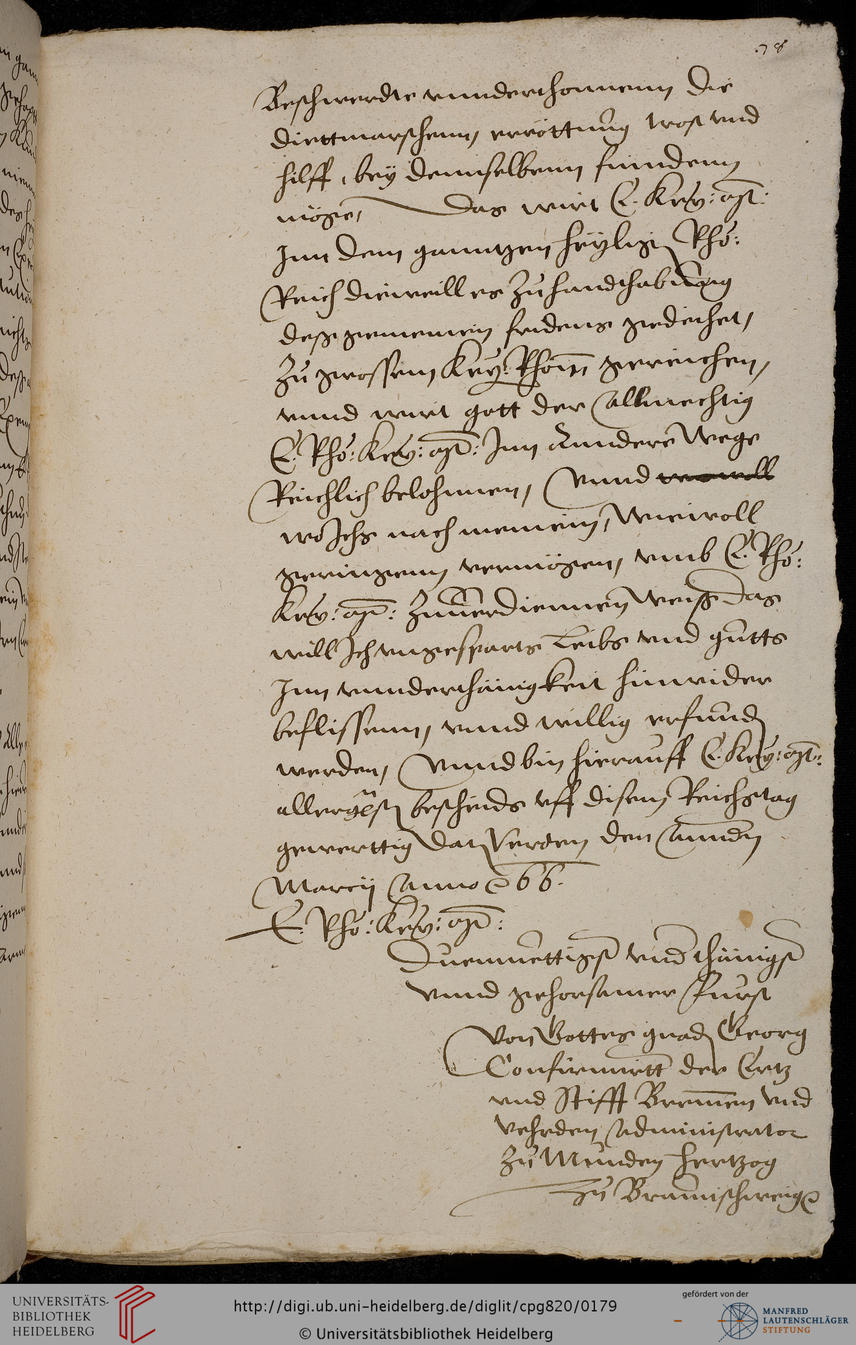 78
Beschwerdte vnnderthonnenn die
diettmarschenn, errottung trost vnd
hilff, bey dennselbenn finndenn
möge, Das wirt E. Key: Mt:
Inn dem ganntzen heyligen Rhö:
Reich dieweill es zu handthabung
deß gemeinen fridens gedeihet,
zu grossem Key: Rhom gereichen,
vnnd wirt gott der Allmechtig
E. Rhö: Key: Mt: Inn Anndere Wege
Reichlich belohnnen, Vnnd
wo Ichs nach meinem, Wiewoll
geringenn vermögen, vmb E. Rhö:
Key: Mt: zuuerdiennen weiß Das
will Ich vngesparts Leibs vnd gutts
Inn vnnderthänigkeit hinwider
beflissenn, vnnd willig erfunden
werden, Vnnd bin hierauff E. Key: Mt:
allergnst bescheids vff disem Reichstag
gewerttig Dat Verden den
Marcij Anno 66.
E. Rhö: Key: Mt:
vnd thänigst
vnnd gehorsamer Fürst
Von Gottes gnaden Georg
Confirmirtt der Ertz
vnd Stifft Bremen vnd
Vehrden Administrator
zu Münden Hertzog
zu Braunschweig
UNIVERSITÄTS-
BIBLIOTHEK
HEIDELBERG
http://digi.ub.uni-heidelberg.de/diglit/cpg820/0179
© Universitätsbibliothek Heidelberg
gefördert von der
MANFRED
LAUTENSCHLÄGER
STIFTUNG